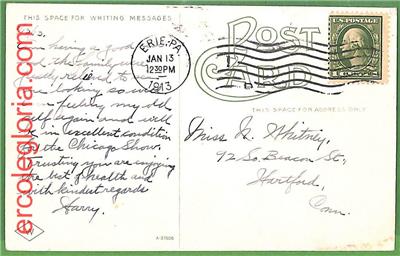 THIS SPACE FOR WRITING MESSAGES
having a good
the family were
to
looking so well
feeling my old
self again and will
be in excellent condition
for the Chicago Show.
Trusting you are enjoying
the best of health and
with kindest regards
Harry.
ERIE, PA.
JAN 13
12 30 PM
1913
POST CARD
U.S. POSTAGE
THIS SPACE FOR ADDRESS ONLY
Miss N. Whitney,
92 So. Beacon St,
Hartford,
Conn.
A-37606
ercolegloria.com